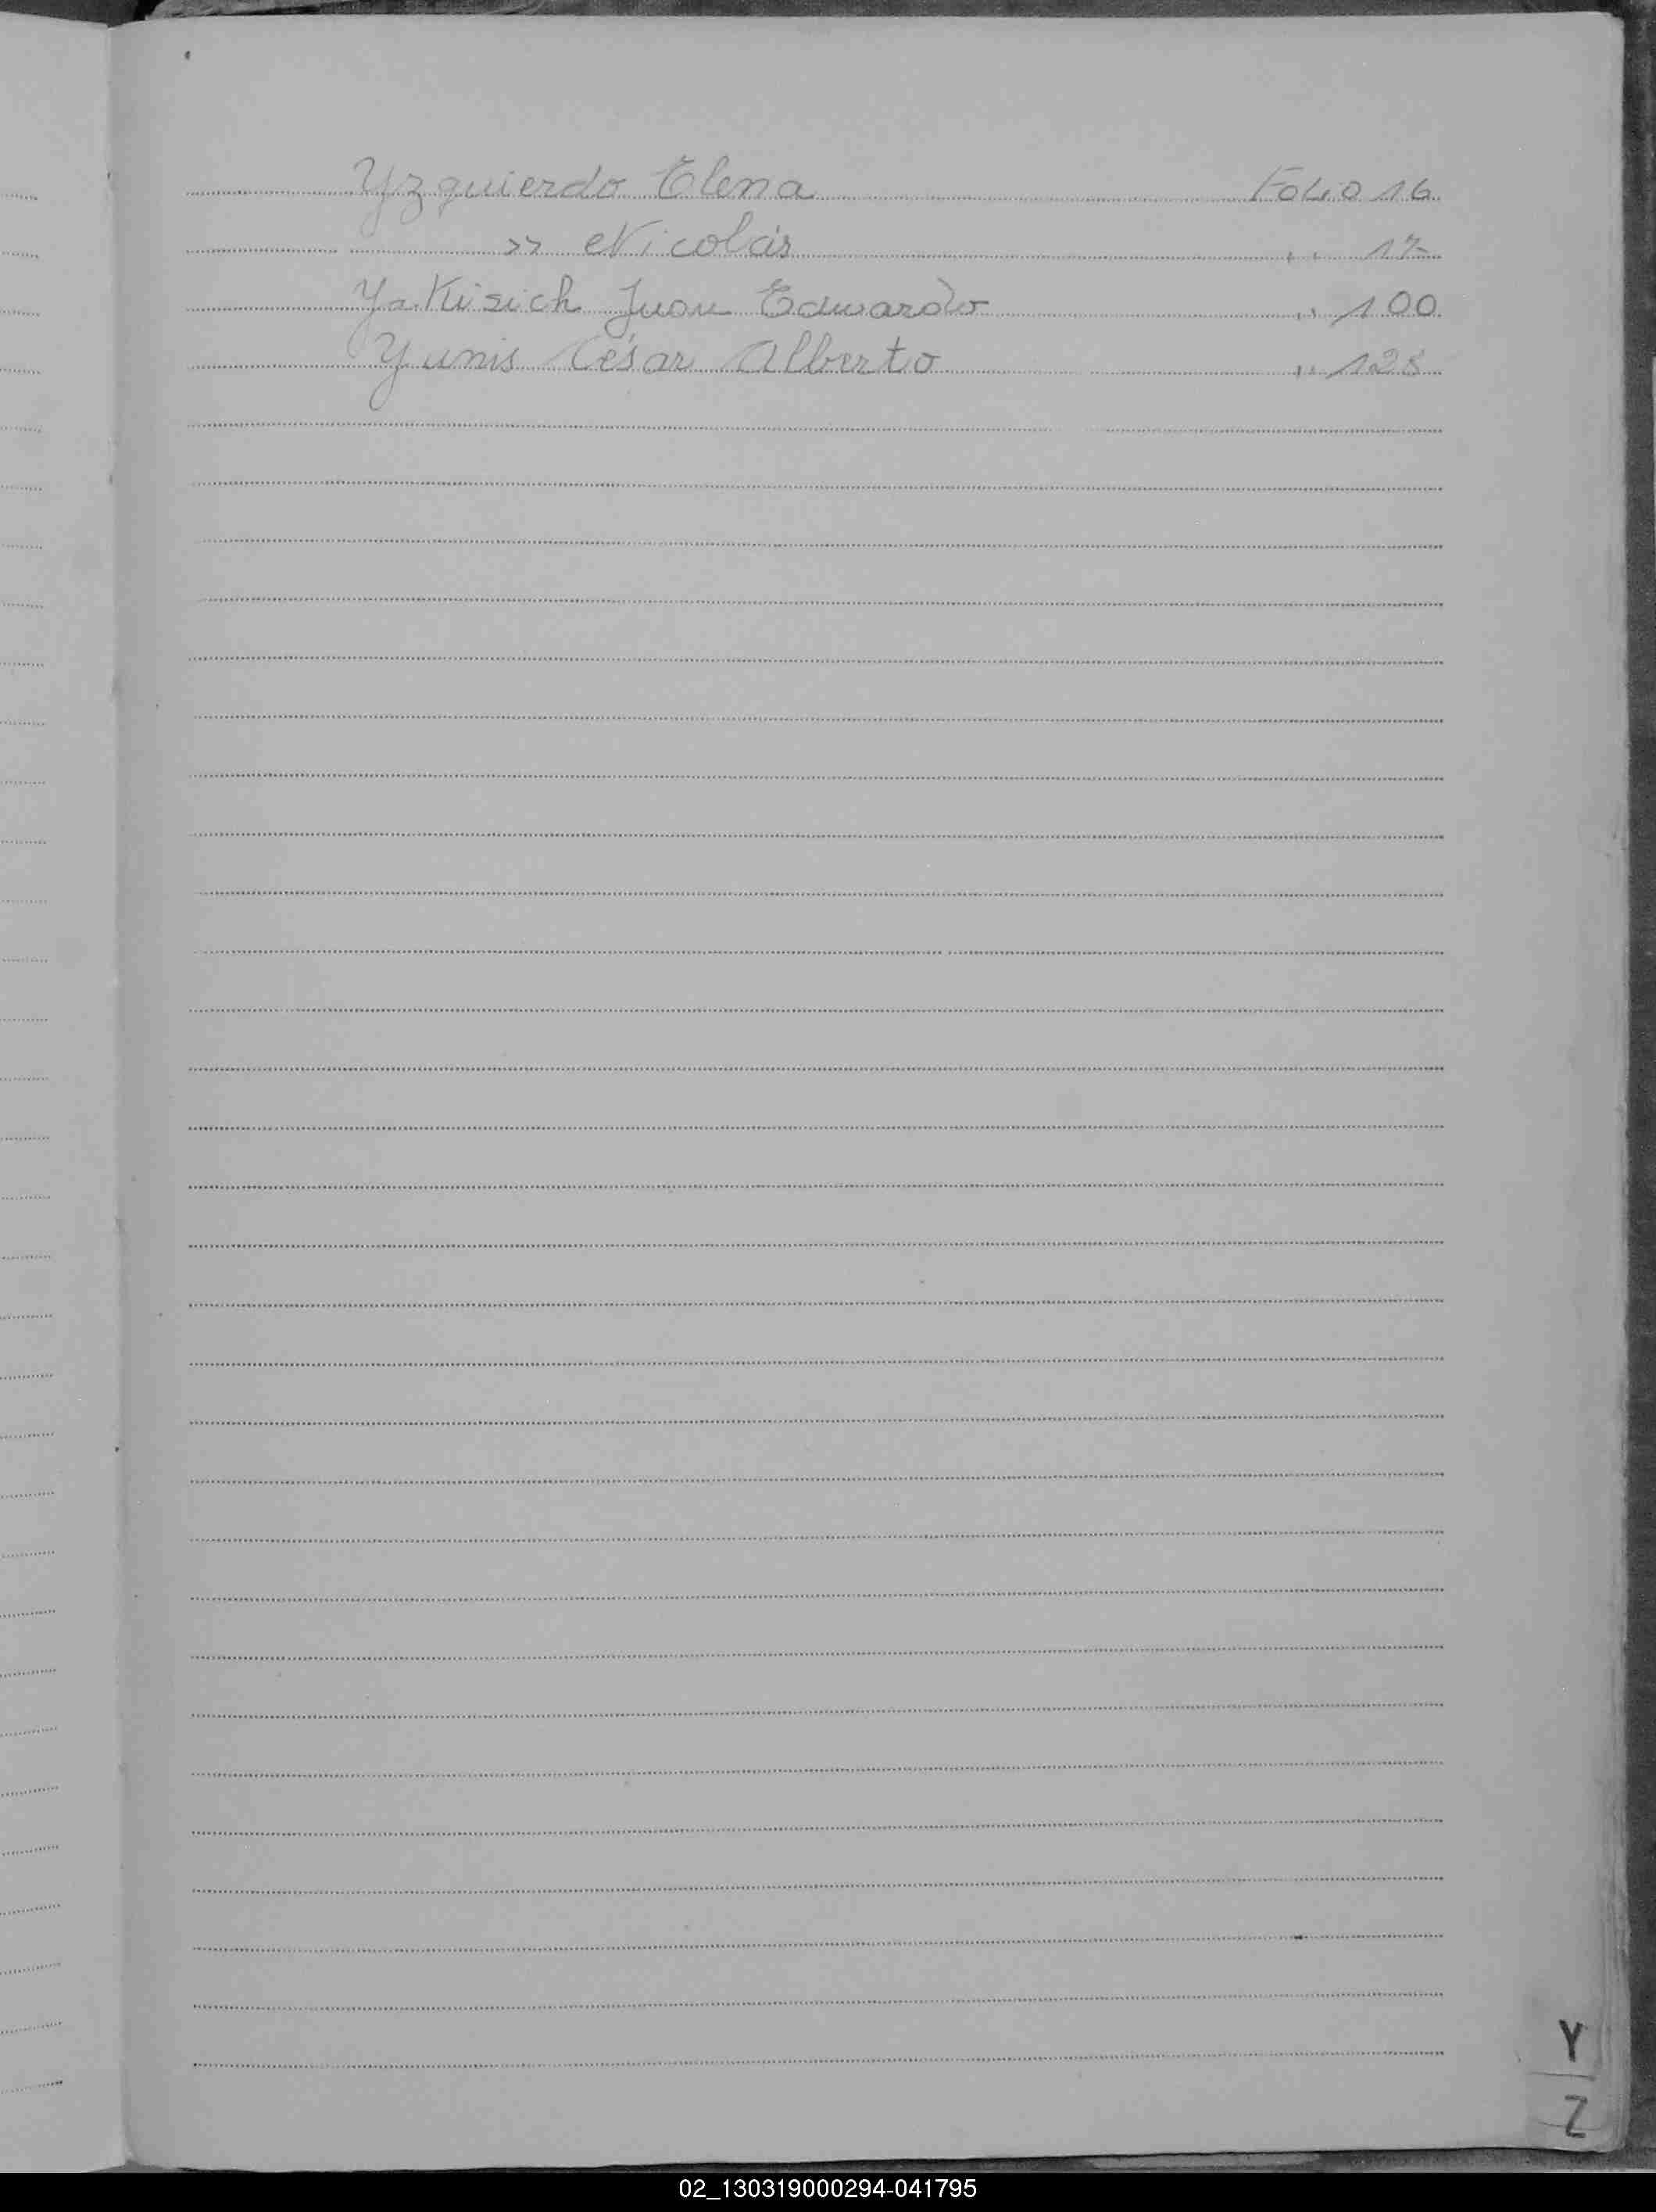 Yzquierdo Elena Folio 16
>> Nicolás ,, 17
Yakusich Juan Eduardo ,, 100
Yunis César Alberto ,, 128
Y
Z
02_130319000294-041795